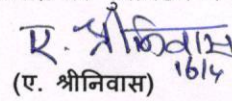 ए. श्रीनिवास
16/4
(ए. श्रीनिवास)